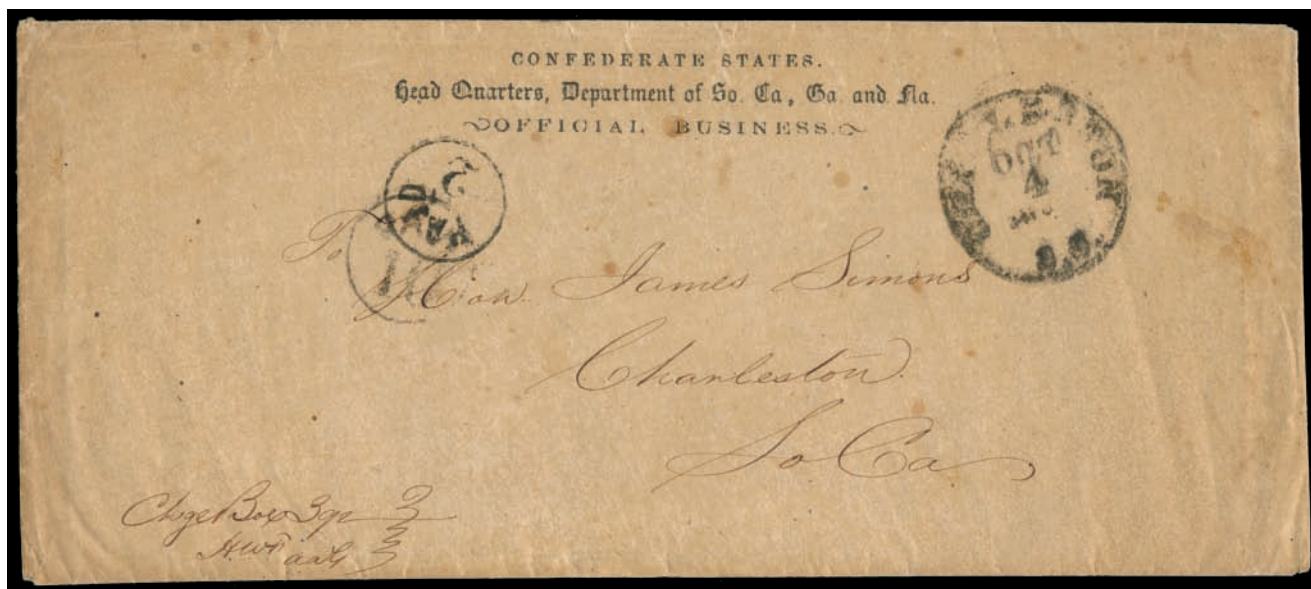 CONFEDERATE STATES.
Head Quarters, Department of So. Ca, Ga. and Fla.
OFFICIAL BUSINESS.
CHARLESTON
OCT
4
S.C.
PAID
2
To
Hon. James Simons
Charleston
So Ca
Chge Box